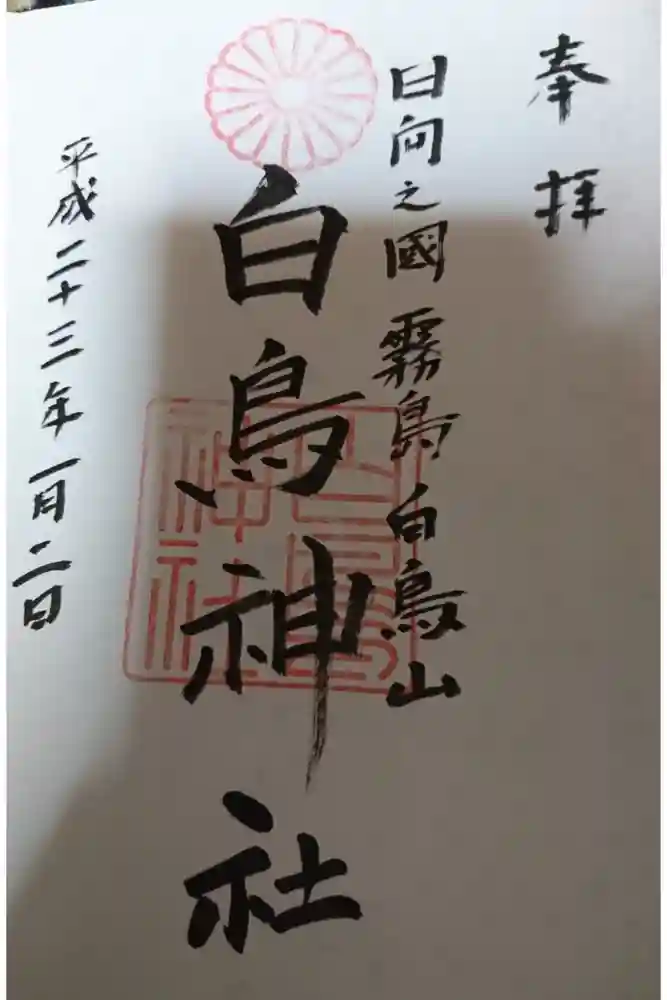 奉拝
日向之國 霧島 白鳥山
白鳥神社
白鳥神社
平成二十三年一月二日